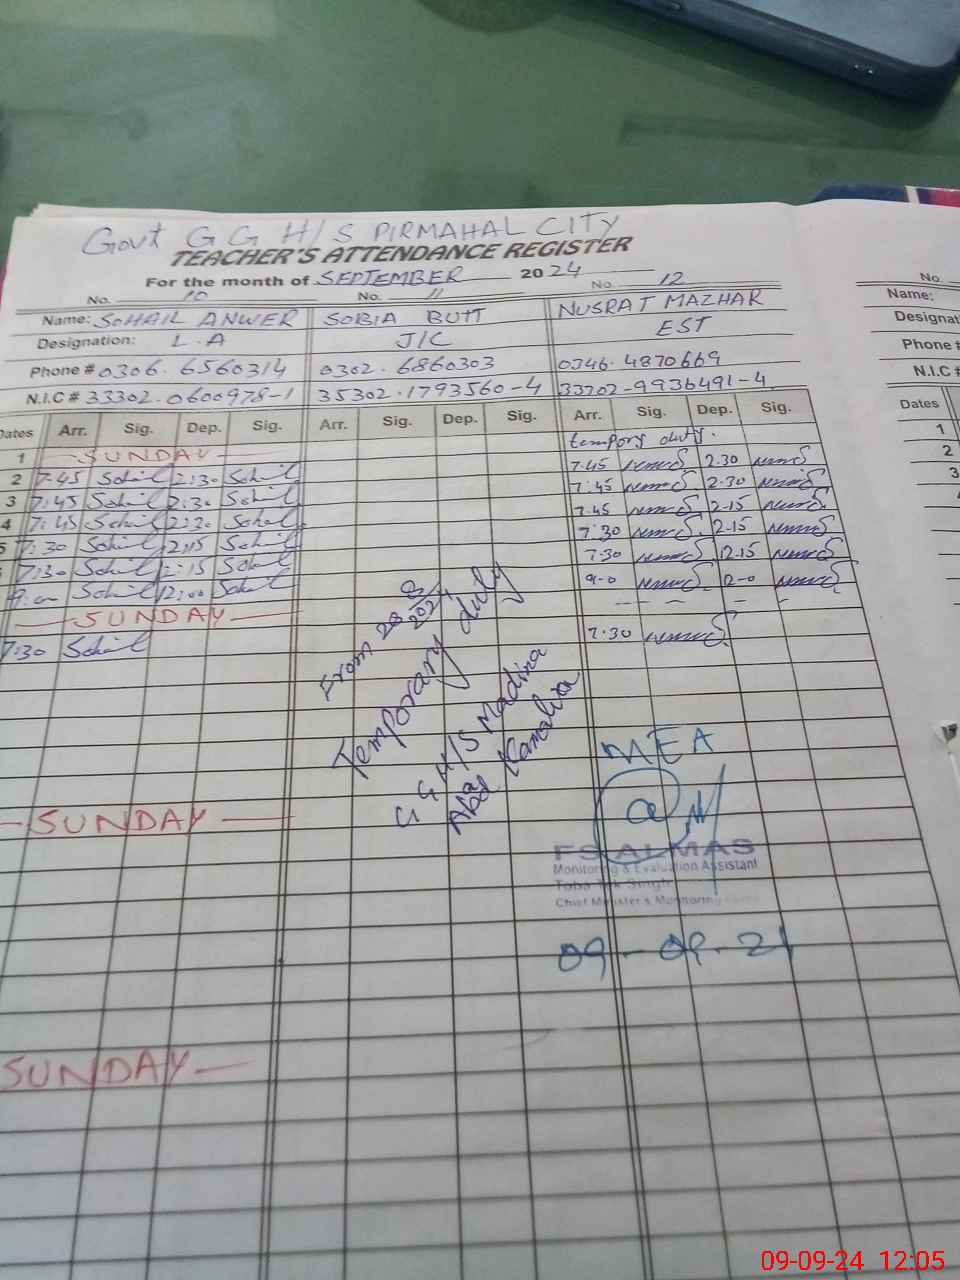 Govt G G H/S PIRMAHAL CITY
TEACHER'S ATTENDANCE REGISTER
For the month of SEPTEMBER 2024
No. 10 No. 11 No. 12
Name: SOHAIL ANWER SOBIA BUTT NUSRAT MAZHAR
Designation: L.A J/C EST
Phone # 0306.6560314 0302.6860303 0346.4870669
N.I.C # 33302.0600978-1 35302.1793560-4 33302-9936491-4
Dates Arr. Sig. Dep. Sig. Arr. Sig. Dep. Sig. Arr. Sig. Dep. Sig.
1 SUNDAY tempory duty.
2 7.45 Sohail 2:30 Sohail 7.45 2.30
3 7:45 Sohail 2:30 Sohail 7:45 2.30
4 7:45 Sohail 2:30 Sohail 7.45 2.15
5 7:30 Sohail 2:15 Sohail 7:30 2.15
7:30 Sohail 2:15 Sohail 7:30 12.15
Sohail 12:00 Sohail 9-0 2-0
SUNDAY
7:30 Sohail 7.30
From
Temporary duty
G G H/S Madina
Abad Kamalia
SUNDAY
SUNDAY
MEA
ALMAS
Monitoring & Evaluation Assistant
Toba Tek Singh
Chief Minister's Monitoring
No.
Name:
Designat
Phone #
N.I.C #
Dates
1
2
3
09-09-24 12:05